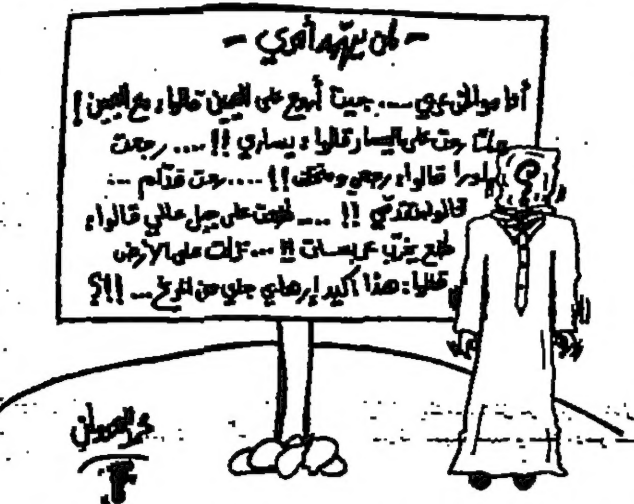 أنا مواطن عربي .... جيت أروح على اليمين قالوا: مع اليمين !
رحت على اليسار قالوا: يساري !! .... رجعت
لورا قالوا: رجعي ومتخلف !! .... رحت قدّام ...
قالوا: تقدّمي !! .... طلعت على جبل عالي قالوا:
طلع يخرّب !! ... نزلت على الأرض
قالوا: هذا أكيد إرهابي جاي من المريخ ... !!؟
محمد